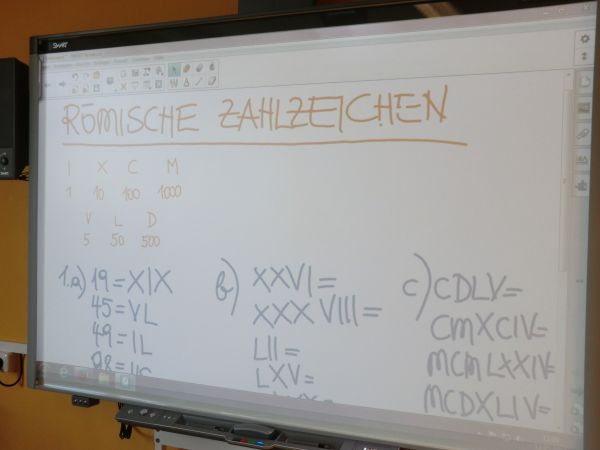 SMART
RÖMISCHE ZAHLZEICHEN
I X C M
1 10 100 1000
V L D
5 50 500
1.a) 19 = XIX
45 = VL
49 = IL
98 =
b) XXVI =
XXXVIII =
LII =
LXV =
c) CDLV =
CMXCIV =
MCMLXXIV =
MCDXLIV =